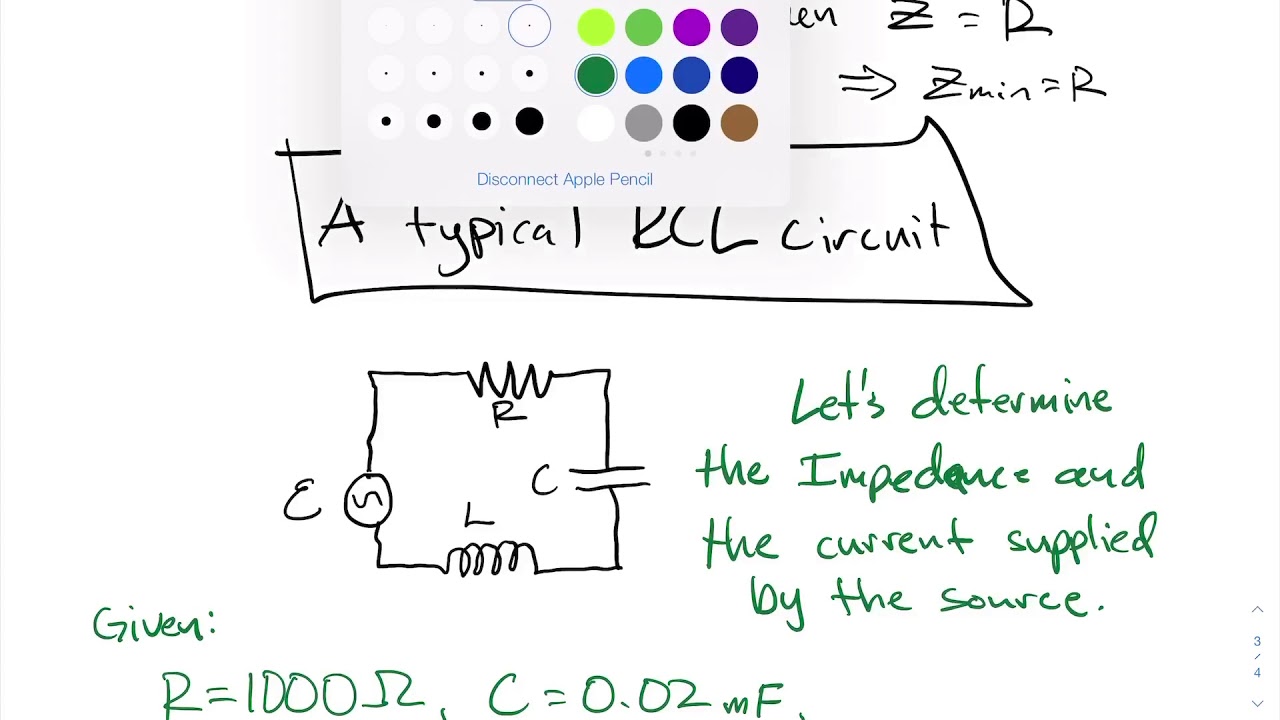 Z = R
⇒ Zmin = R
Disconnect Apple Pencil
A typical RCL circuit
R
C
ε
L
Let's determine
the Impedance and
the current supplied
by the source.
Given:
3
4
R = 1000 Ω, C = 0.02 mF,